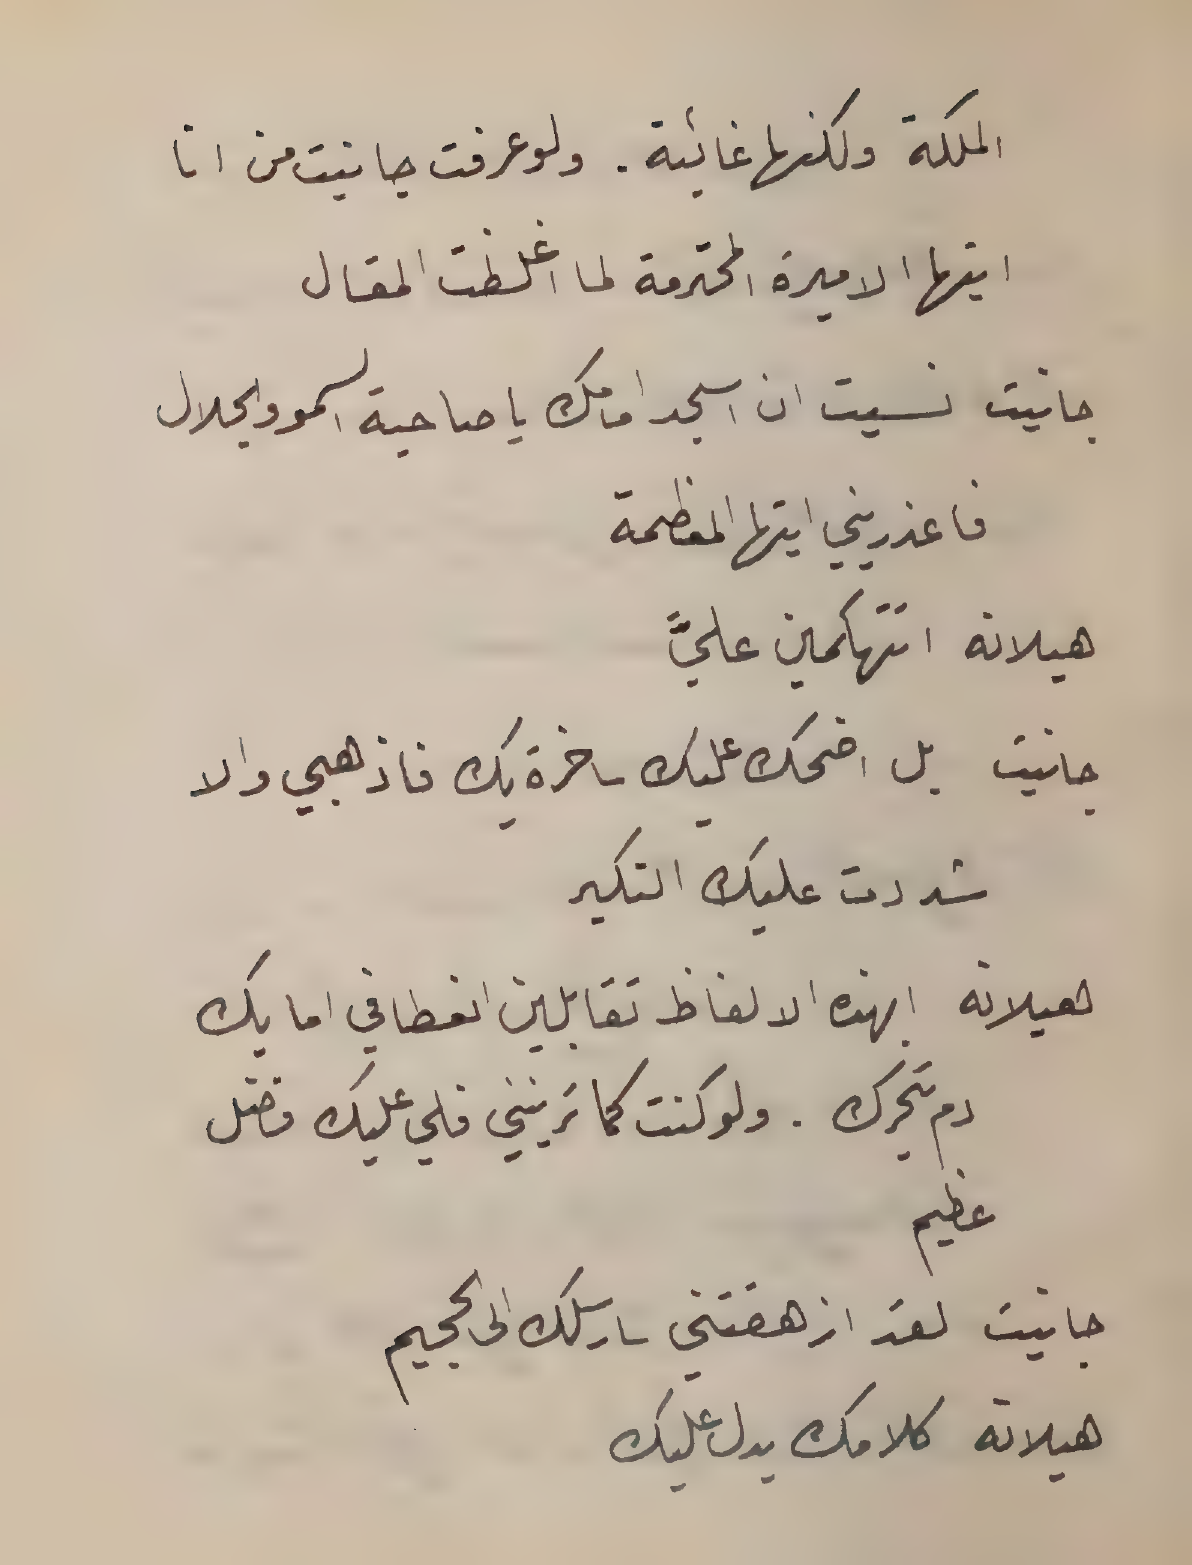 الملكة ولكنها غائبة . ولو عرفت جانيت من انا
ايتها الاميرة المحترمة لما اغلظت المقال
جانيت نسيت ان اسجد امامك يا صاحبة السمو والجلال
فاعذريني ايتها المعظمة
هيلانة اتتهكمين عليَّ
جانيت بل اضحك عليك ساخرة بك فاذهبي والا
شددت عليك النكير
هيلانة ابهذه الالفاظ تقابلين انعطافي اما بك
دم تحرك . ولو كنت كما ترينني فلي عليك فضل
عظيم
جانيت لقد ازهقتني سارسلك الى الجحيم
هيلانة كلامك يدل عليك